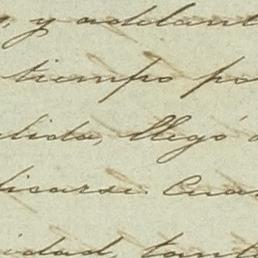 , y adelant
tiempo po
lida, llegó a
licarse. Cua
idad, tant